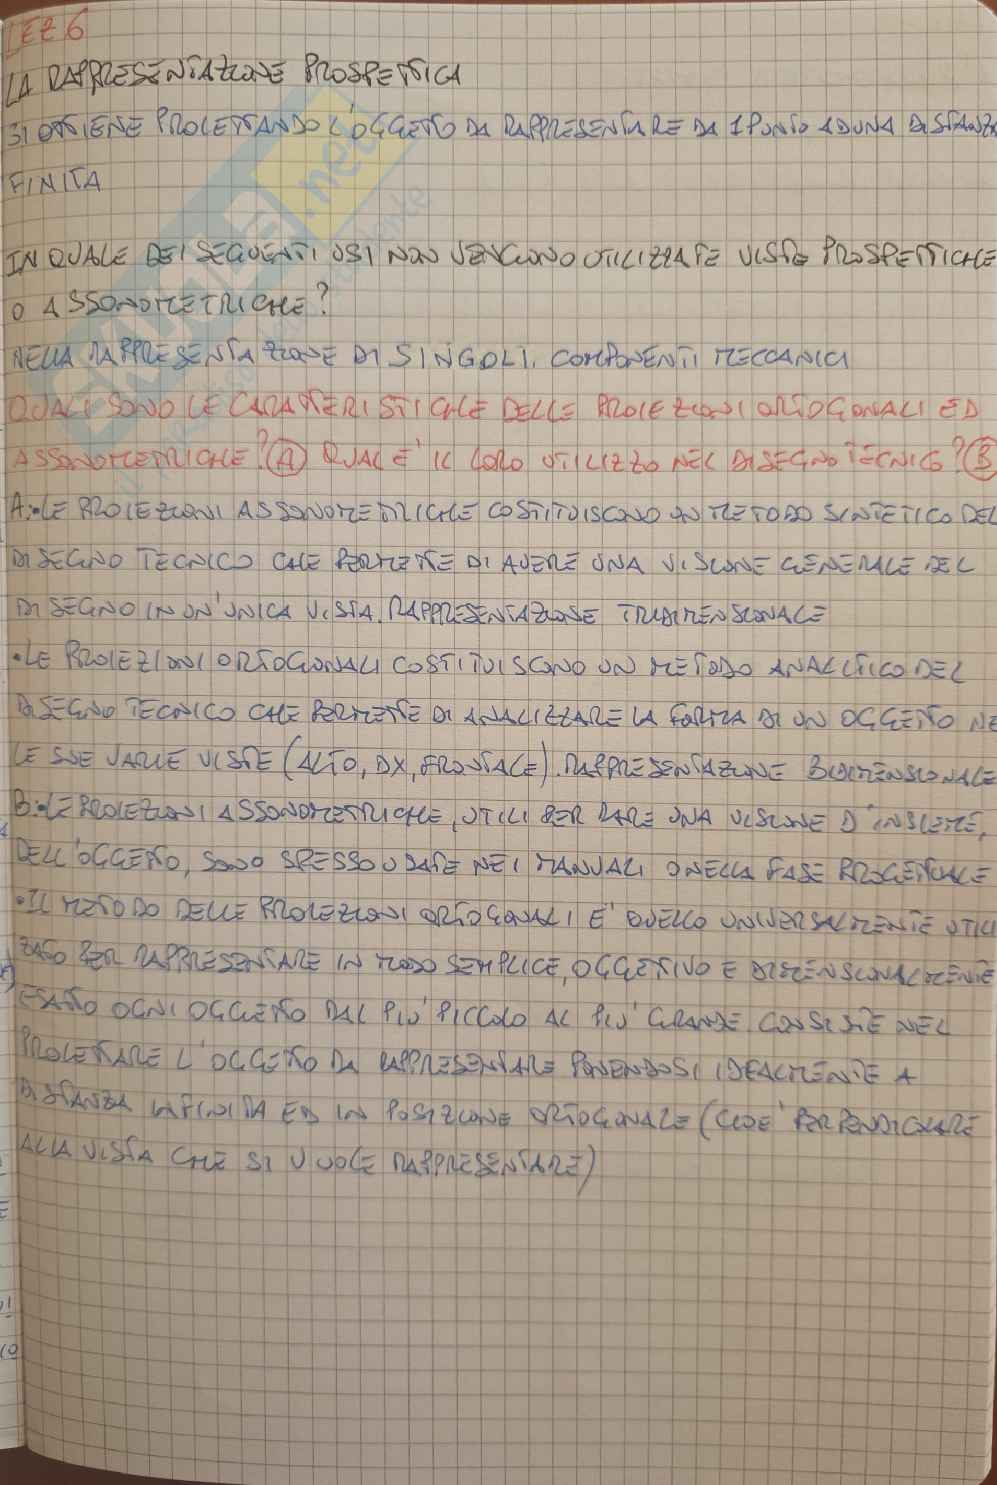 LEZ 6
LA RAPPRESENTAZIONE PROSPETTICA
SI OTTIENE PROIETTANDO L'OGGETTO DA RAPPRESENTARE DA 1 PUNTO AD UNA DISTANZA
FINITA
IN QUALE DEI SEGUENTI USI NON VENGONO UTILIZZATE VISTE PROSPETTICHE
O ASSONOMETRICHE?
NELLA RAPPRESENTAZIONE DI SINGOLI COMPONENTI MECCANICI
QUALI SONO LE CARATTERISTICHE DELLE PROIEZIONI ORTOGONALI ED
ASSONOMETRICHE? (A) QUAL E' IL LORO UTILIZZO NEL DISEGNO TECNICO? (B)
A: •LE PROIEZIONI ASSONOMETRICHE COSTITUISCONO UN METODO SINTETICO DEL
DISEGNO TECNICO CHE PERMETTE DI AVERE UNA VISIONE GENERALE DEL
DISEGNO IN UN'UNICA VISTA. RAPPRESENTAZIONE TRIDIMENSIONALE
•LE PROIEZIONI ORTOGONALI COSTITUISCONO UN METODO ANALITICO DEL
DISEGNO TECNICO CHE PERMETTE DI ANALIZZARE LA FORMA DI UN OGGETTO NE
LE SUE VARIE VISTE (ALTO, DX, FRONTALE). RAPPRESENTAZIONE BIDIMENSIONALE
B: •LE PROIEZIONI ASSONOMETRICHE, UTILI PER DARE UNA VISIONE D'INSIEME,
DELL'OGGETTO, SONO SPESSO USATE NEI MANUALI O NELLA FASE PROGETTUALE
•IL METODO DELLE PROIEZIONI ORTOGONALI E' QUELLO UNIVERSALMENTE UTILI
ZATO PER RAPPRESENTARE IN MODO SEMPLICE, OGGETTIVO E DIMENSIONALMENTE
ESATTO OGNI OGGETTO DAL PIU' PICCOLO AL PIU' GRANDE CONSISTE NEL
PROIETTARE L'OGGETTO DA RAPPRESENTARE PONENDOSI IDEALMENTE A
DISTANZA INFINITA ED IN POSIZIONE ORTOGONALE (CIOE' PERPENDICOLARE
ALLA VISTA CHE SI VUOLE RAPPRESENTARE)